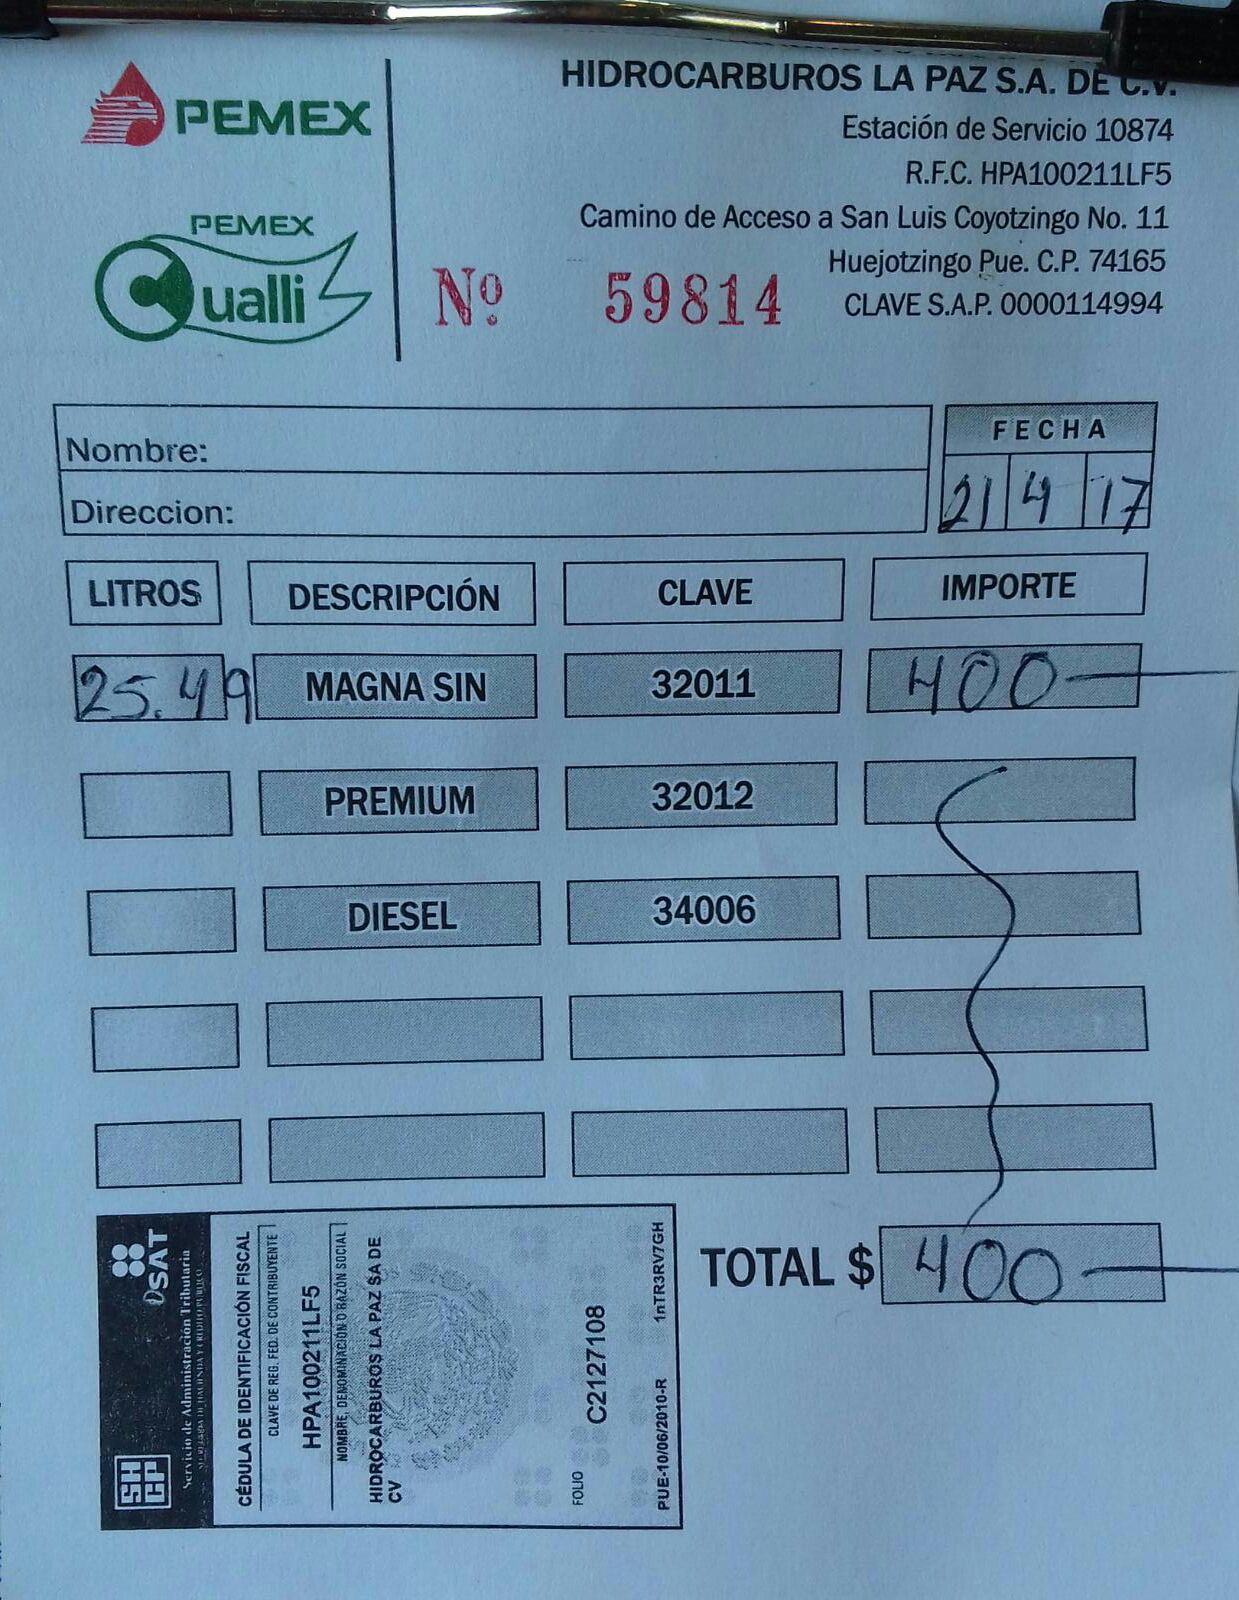 PEMEX
PEMEX
Cualli
HIDROCARBUROS LA PAZ S.A. DE C.V.
Estación de Servicio 10874
R.F.C. HPA100211LF5
Camino de Acceso a San Luis Coyotzingo No. 11
Huejotzingo Pue. C.P. 74165
CLAVE S.A.P. 0000114994
Nº 59814
Nombre:
Direccion:
FECHA
21 4 17
LITROS DESCRIPCIÓN CLAVE IMPORTE
25.49 MAGNA SIN 32011 400
PREMIUM 32012
DIESEL 34006
TOTAL $ 400
SHCP
SAT
Servicio de Administración Tributaria
SECRETARÍA DE HACIENDA Y CRÉDITO PÚBLICO
CÉDULA DE IDENTIFICACIÓN FISCAL
CLAVE DE REG. FED. DE CONTRIBUYENTE
HPA100211LF5
NOMBRE, DENOMINACIÓN O RAZÓN SOCIAL
HIDROCARBUROS LA PAZ SA DE
CV
FOLIO
C2127108
PUE-10/06/2010-R 1nTR3RV7GH